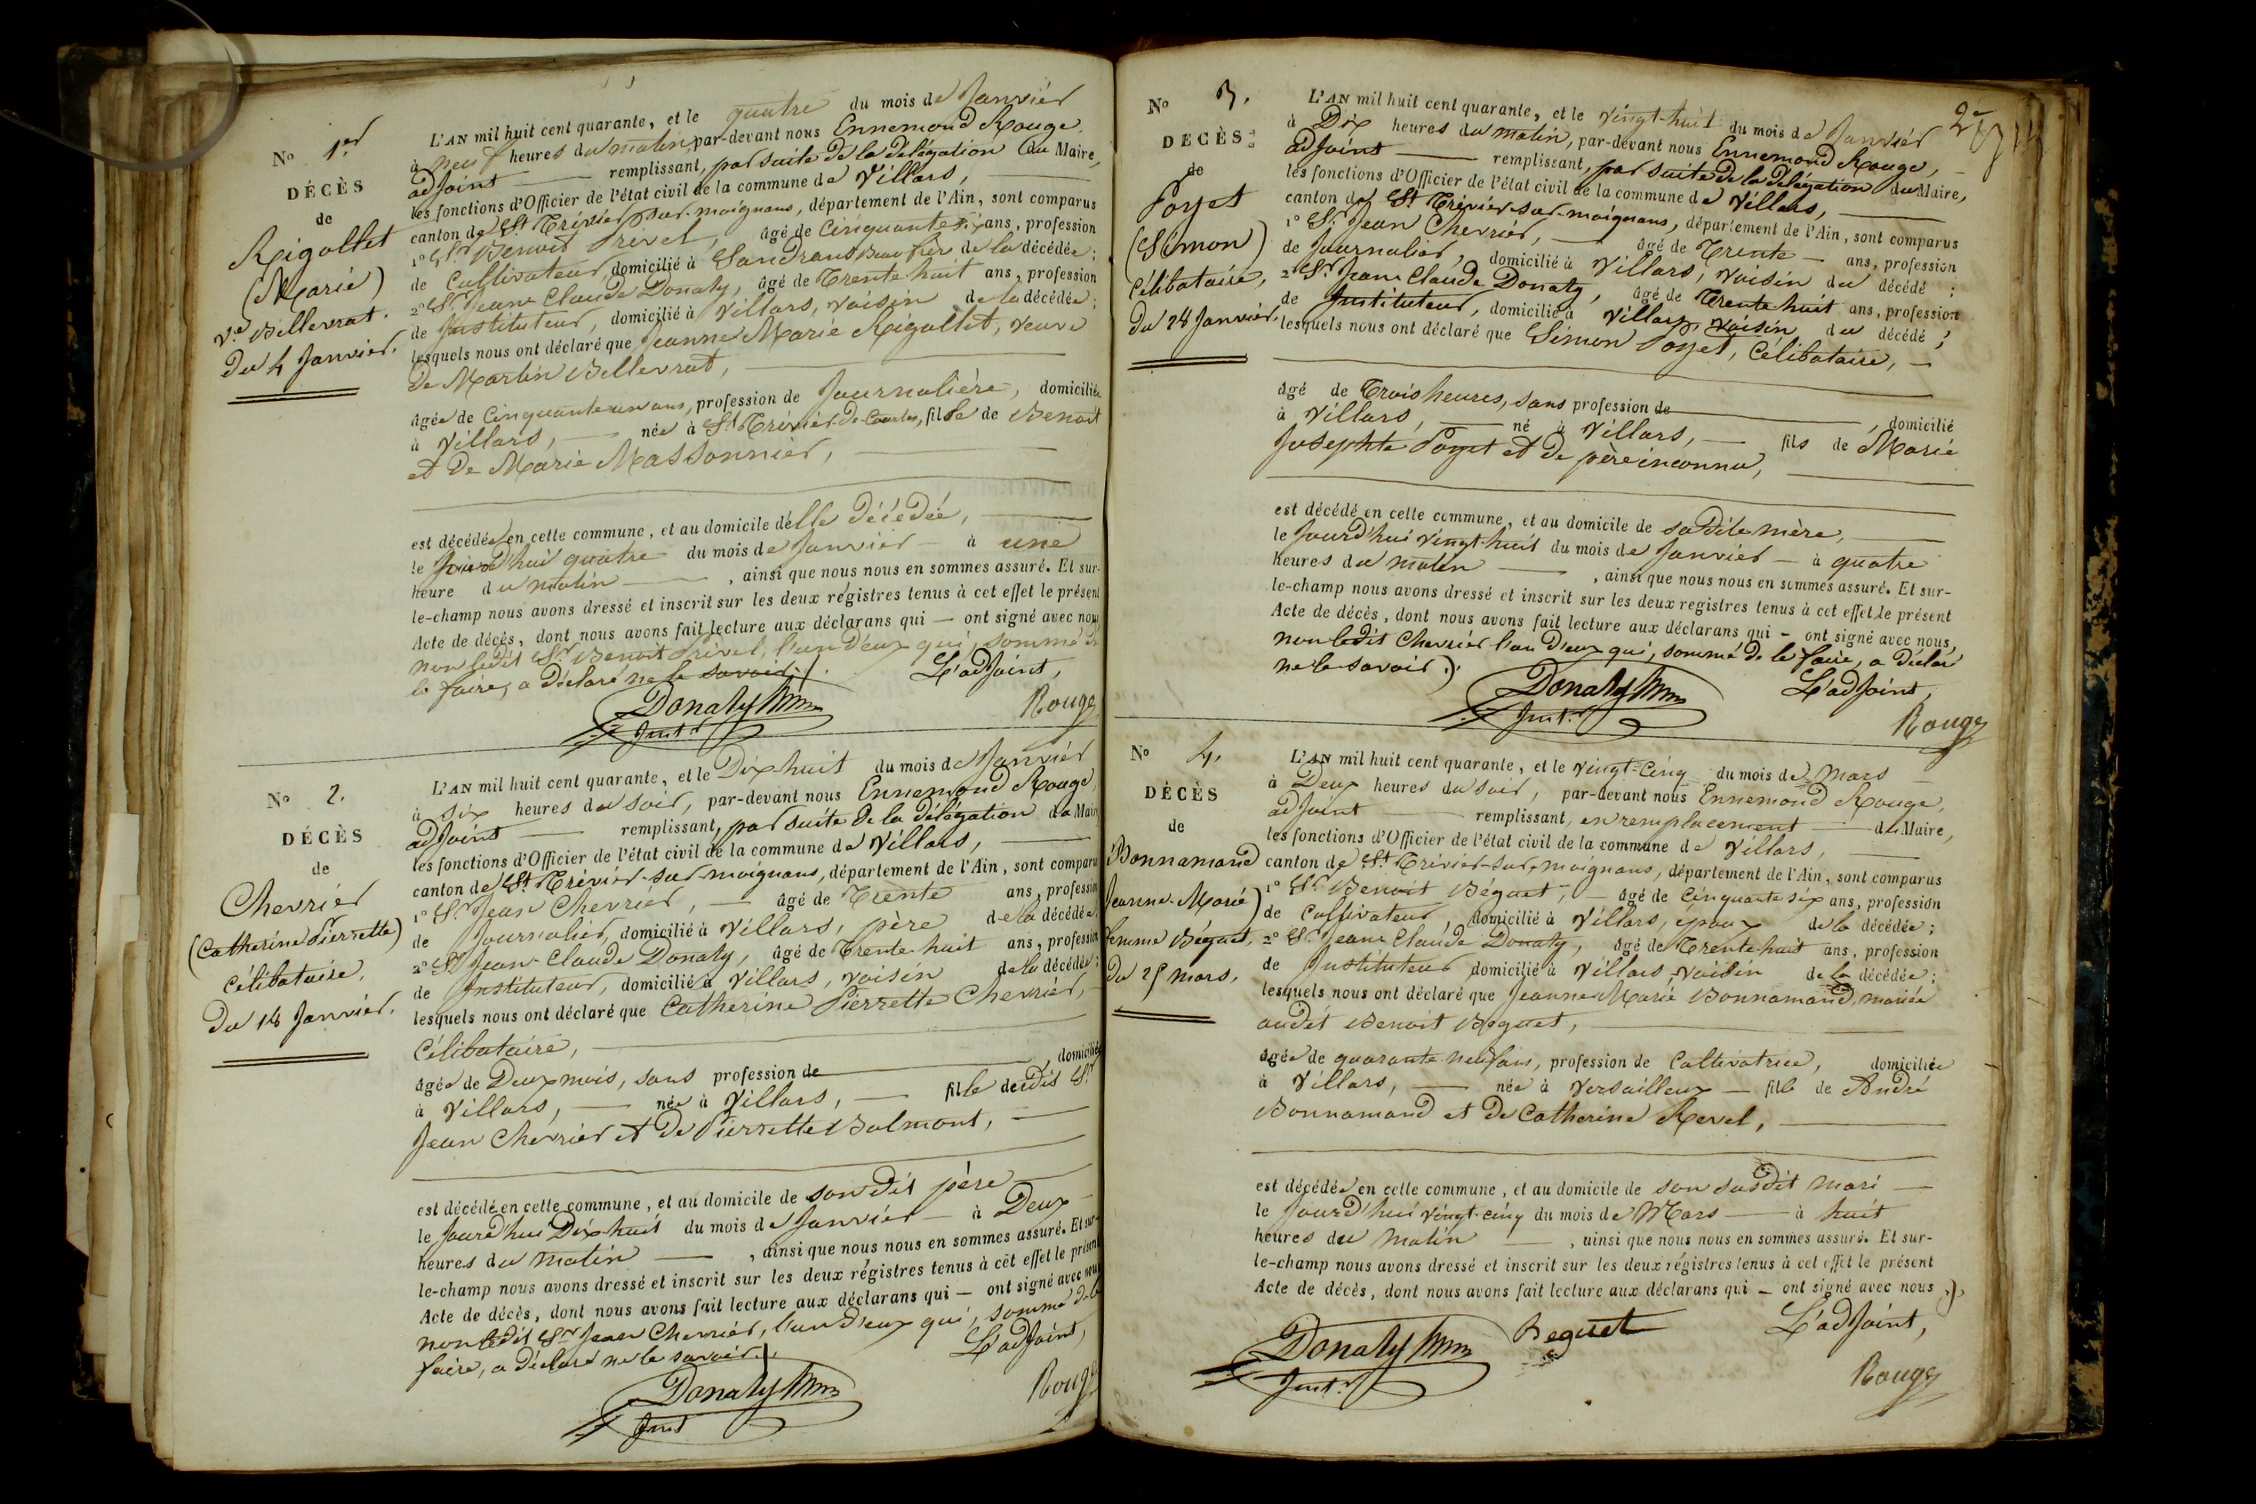 No 1er
DÉCÈS
de
Rigollet
(Marie)
Ve Billevrat.
Du 4 Janvier.
L'AN mil huit cent quarante, et le quatre du mois de Janvier
à neuf heures du matin, par-devant nous Ennemond Rouge,
adjoint remplissant, par suite de la délégation du Maire,
les fonctions d'Officier de l'état civil de la commune de Villars,
canton de St Trévier-sur-moignans, département de l'Ain, sont comparus
1o Sr Benoit Privel, âgé de Cinquante six ans, profession
de Cultivateur, domicilié à Sandrans Beau frère de la décédée;
2o Sr Jean Claude Donaty, âgé de Trente huit ans, profession
de Instituteur, domicilié à Villars, voisin de la décédée;
lesquels nous ont déclaré que Jeanne Marie Rigollet, veuve
de Martin Billevrat,
âgée de Cinquante un ans, profession de Journalière, domiciliée
à Villars, née à St Trivier de Courtes, fille de Benoit
et de Marie Massonnier,
est décédée en cette commune, et au domicile d'elle décédée,
le Jourd'hui quatre du mois de Janvier à une
heure du matin, ainsi que nous nous en sommes assuré. Et sur-
le-champ nous avons dressé et inscrit sur les deux régistres tenus à cet effet le présent
Acte de décès, dont nous avons fait lecture aux déclarans qui — ont signé avec nous
non ledit Sr Benoit Privel, l'un d'eux qui, sommé de
le faire, a déclaré ne le savoir.
L'adjoint,
Donaty
Instr
Rouge
No 2.
DÉCÈS
de
Chevrier
(Catherine Pierrette)
Célibataire.
Du 18 Janvier.
L'AN mil huit cent quarante, et le Dix huit du mois de Janvier
à six heures du soir, par-devant nous Ennemond Rouge,
adjoint remplissant, par suite de la délégation du Maire
les fonctions d'Officier de l'état civil de la commune de Villars,
canton de St Trévier-sur-moignans, département de l'Ain, sont comparus
1o Sr Jean Chevrier, âgé de Trente ans, profession
de Journalier, domicilié à Villars, père de la décédée;
2o Sr Jean-Claude Donaty, âgé de Trente-huit ans, profession
de Instituteur, domicilié à Villars, voisin de la décédée;
lesquels nous ont déclaré que Catherine Pierrette Chevrier,
Célibataire,
âgée de Deux mois, sans profession de, domiciliée
à Villars, née à Villars, fille dudit Sr
Jean Chevrier et de Pierrette Balmont,
est décédée en cette commune, et au domicile de sondit père
le Jourd'hui Dix-huit du mois de Janvier à Deux
heures du matin, ainsi que nous nous en sommes assuré. Et sur-
le-champ nous avons dressé et inscrit sur les deux régistres tenus à cet effet le présent
Acte de décès, dont nous avons fait lecture aux déclarans qui — ont signé avec nous
non ledit Sr Jean Chevrier, l'un d'eux qui, sommé de le
faire, a déclaré ne le savoir.
L'adjoint,
Donaty
Inst
Rouge
2e
No 3.
DECÈS
de
Poyet
(Simon)
Célibataire,
Du 28 Janvier.
L'AN mil huit cent quarante, et le vingt-huit du mois de Janvier
à Dix heures du matin, par-devant nous Ennemond Rouge,
adjoint remplissant, par suite de la délégation du Maire,
les fonctions d'Officier de l'état civil de la commune de Villars,
canton de St Trévier-sur-moignans, département de l'Ain, sont comparus
1o Sr Jean Chevrier, âgé de Trente ans, profession
de Journalier, domicilié à Villars, voisin du décédé;
2o Sr Jean Claude Donaty, âgé de Trente huit ans, profession
de Instituteur, domicilié à Villars, voisin du décédé;
lesquels nous ont déclaré que Simon Poyet, Célibataire,
âgé de Trois heures, sans profession de, domicilié
à Villars, né à Villars, fils de Marie
Josephte Poyet et de père inconnu,
est décédé en cette commune, et au domicile de sadite mère,
le Jourd'hui vingt-huit du mois de Janvier à quatre
heures du matin, ainsi que nous nous en sommes assuré. Et sur-
le-champ nous avons dressé et inscrit sur les deux registres tenus à cet effet le présent
Acte de décès, dont nous avons fait lecture aux déclarans qui — ont signé avec nous,
non ledit Chevrier l'un d'eux qui, sommé de le faire, a déclaré
ne le savoir.
L'adjoint,
Donaty
Instr
Rouge
No 4.
DÉCÈS
de
Bonnamand
Jeanne-Marie)
femme Béguet,
Du 25 mars.
L'AN mil huit cent quarante, et le vingt-cinq du mois de Mars
à Deux heures du soir, par-devant nous Ennemond Rouge,
adjoint remplissant, en remplacement du Maire,
les fonctions d'Officier de l'état civil de la commune de Villars,
canton de St Trévier-sur-moignans, département de l'Ain, sont comparus
1o Sr Benoit Béguet, âgé de Cinquante six ans, profession
de Cultivateur, domicilié à Villars, époux de la décédée;
2o Sr Jean Claude Donaty, âgé de Trente-huit ans, profession
de Instituteur domicilié à Villars voisin de la décédée;
lesquels nous ont déclaré que Jeanne Marie Bonnamand, mariée
audit Benoit Béguet,
âgée de quarante neuf ans, profession de Cultivatrice, domiciliée
à Villars, née à Versailleux fille de André
Bonnamand et de Catherine Revel,
est décédée en cette commune, et au domicile de son susdit mari
le Jourd'hui vingt-cinq du mois de Mars à huit
heures du matin, ainsi que nous nous en sommes assuré. Et sur-
le-champ nous avons dressé et inscrit sur les deux régistres tenus à cet effet le présent
Acte de décès, dont nous avons fait lecture aux déclarans qui — ont signé avec nous
L'adjoint,
Donaty
Instr
Beguet
Rouge